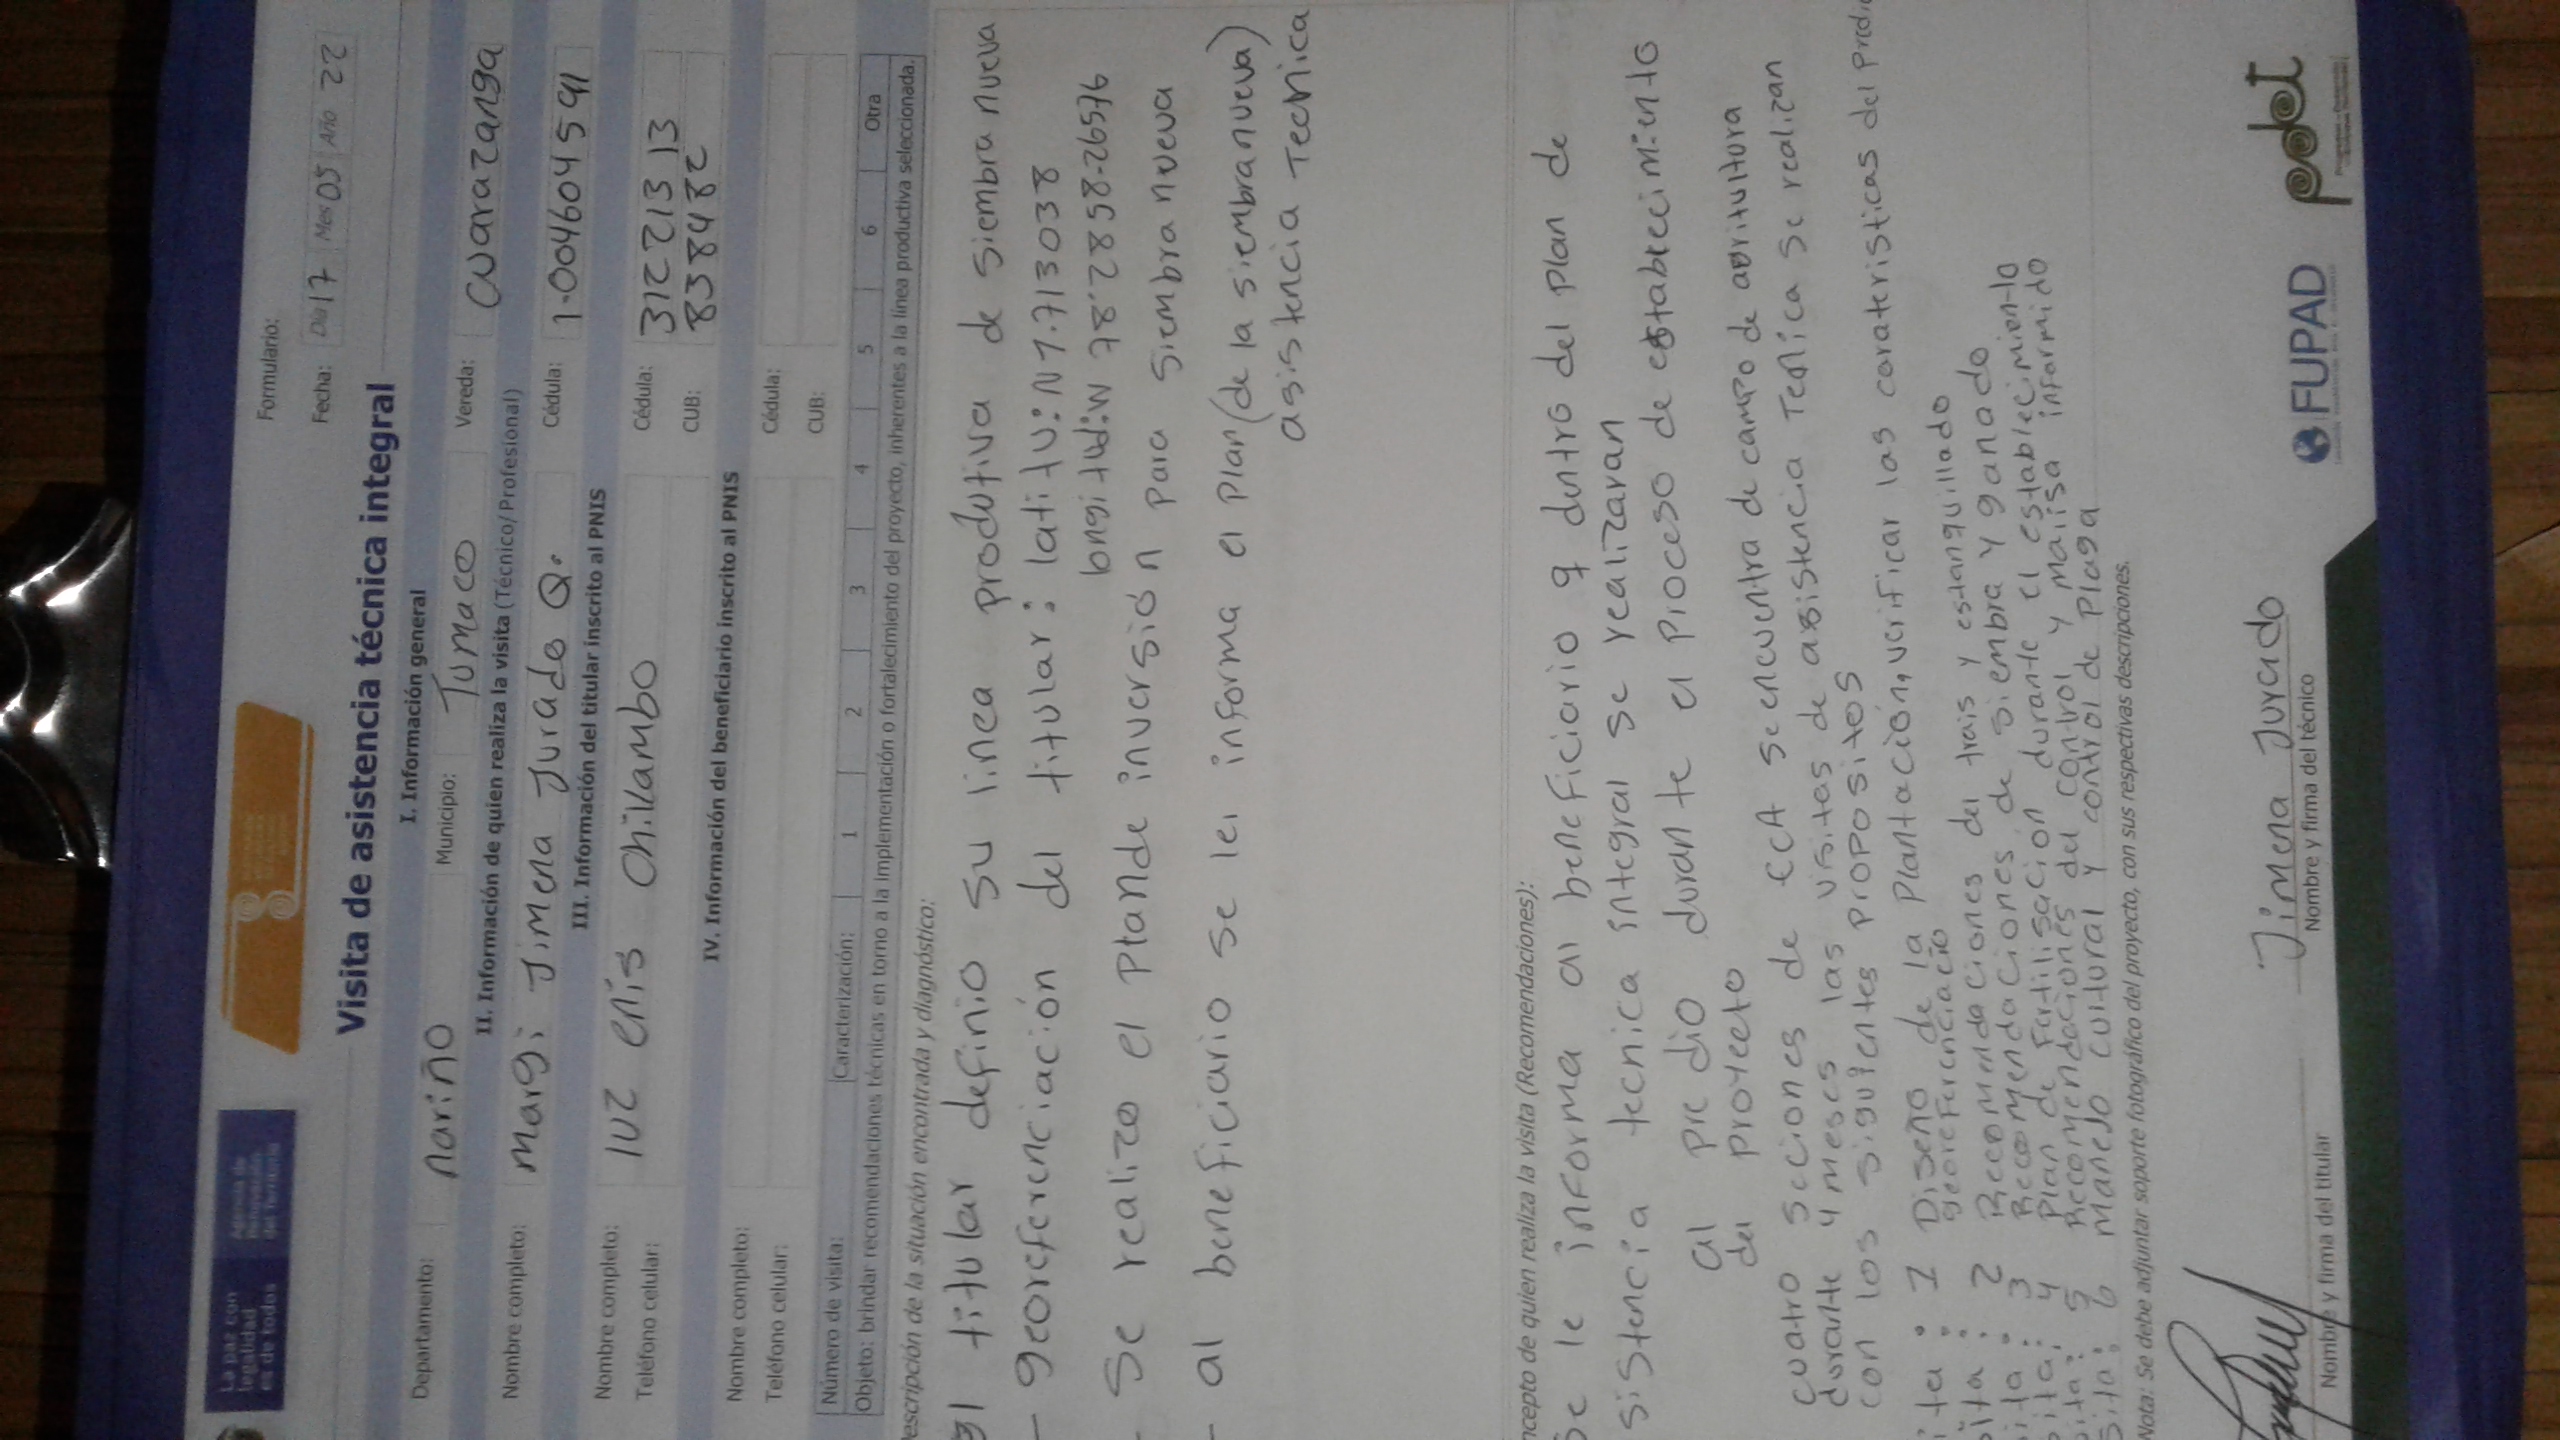 La paz con
legalidad
es de todos
Agencia de
Renovación
del Territorio
Formulario:
Fecha: Día 17 Mes 05 Año 22
Visita de asistencia técnica integral
I. Información general
Departamento: nariño Municipio: Tumaco Vereda: Cuarazanga
II. Información de quien realiza la visita (Técnico/Profesional)
Nombre completo: Margi Jimena Jurado Q. Cédula: 1.004604591
III. Información del titular inscrito al PNIS
Nombre completo: luz enis Chillambo Cédula: 312221313
Teléfono celular: CUB: 8384482
IV. Información del beneficiario inscrito al PNIS
Nombre completo: Cédula:
Teléfono celular: CUB:
Número de visita: Caracterización: 1 2 3 4 5 6 Otra
Objeto: brindar recomendaciones técnicas en torno a la implementación o fortalecimiento del proyecto, inherentes a la línea productiva seleccionada.
escripción de la situación encontrada y diagnóstico:
El titular definio su linea produtiva de siembra nueva
- georeferenciación del titular: latitu: N 1.713038
longitud: W 78.2858-26576
- Se realizo el Plande inversión para siembra nueva
- al beneficiario se lei informa el plan (de la siembra nueva)
asistencia Tecnica
ncepto de quien realiza la visita (Recomendaciones):
Se le informa al beneficiario q dentro del plan de
sistencia tecnica integral se realizaran
al predio durante el proceso de establecimiento
del proyecto
cuatro secciones de ECA se encuentra de campo de agritultora
durante 4 meses las visitas de asistencia Tecnica se realizan
con los siguientes propositos
ita: 1 Diseño de la plantación, verificar las carateristicas del predio
georeferenciacio
ita: 2 Recomendaciones del trais y estanquillado
ita: 3 Recomendaciones de siembra y ganado
ita: 4 Plan de fertilisacion durante el establecimiento
ita: 5 Recomendaciones del control y malisa informido
sita: 6 Manejo cultural y control de plaga
Nota: Se debe adjuntar soporte fotográfico del proyecto, con sus respectivas descripciones.
Jimena Jurado
Nombre y firma del titular Nombre y firma del técnico
FUPAD
pdet